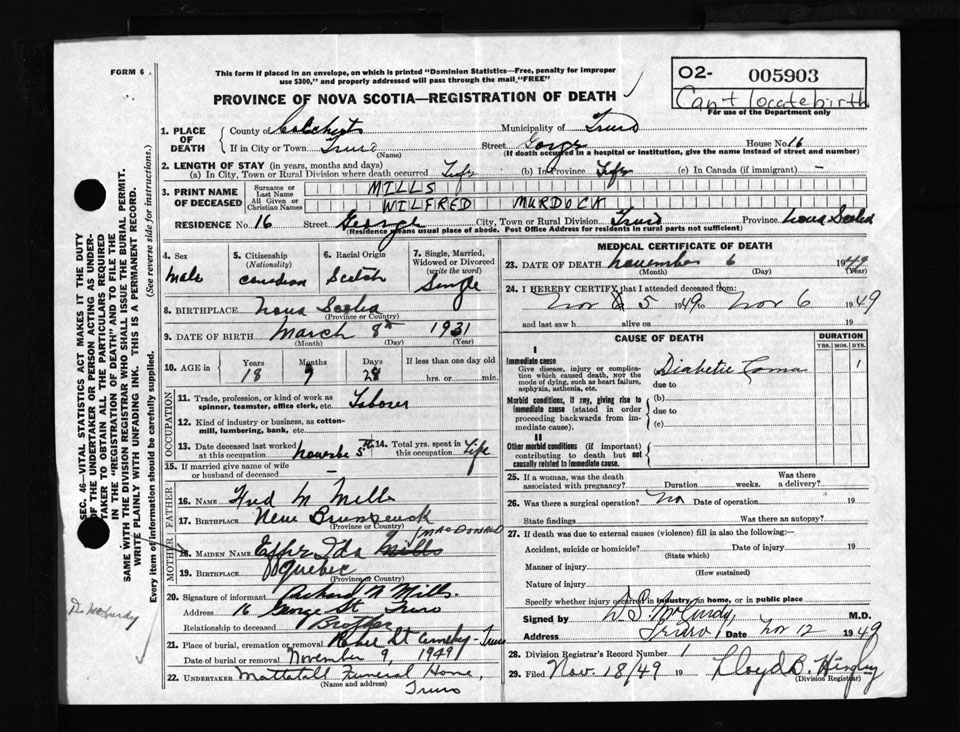 FORM 6
This form if placed in an envelope, on which is printed "Dominion Statistics—Free, penalty for improper
use $300," and properly addressed will pass through the mail "FREE"
PROVINCE OF NOVA SCOTIA—REGISTRATION OF DEATH
O2- 005903
Can't locate birth
For use of the Department only
1. PLACE OF DEATH
County of Colchester Municipality of Truro
If in City or Town Truro Street George House No. 16
(Name) (If death occurred in a hospital or institution, give the name instead of street and number)
2. LENGTH OF STAY (in years, months and days)
(a) In City, Town or Rural Division where death occurred Life (b) In Province Life (c) In Canada (if immigrant) —
3. PRINT NAME OF DECEASED
Surname or Last Name MILLS
All Given or Christian Names WILFRED MURDOCK
RESIDENCE No. 16 Street George City, Town or Rural Division Truro Province Nova Scotia
(Residence means usual place of abode. Post Office Address for residents in rural parts not sufficient)
4. Sex
Male
5. Citizenship
(Nationality)
Canadian
6. Racial Origin
Scotch
7. Single, Married, Widowed or Divorced
(write the word)
Single
8. BIRTHPLACE Nova Scotia
(Province or Country)
9. DATE OF BIRTH March 8th 1931
(Month) (Day) (Year)
10. AGE in Years Months Days If less than one day old
18 28 hrs. or min.
OCCUPATION
11. Trade, profession or kind of work as spinner, teamster, office clerk, etc. Laborer
12. Kind of industry or business, as cotton-mill, lumbering, bank, etc.
13. Date deceased last worked at this occupation 5th
14. Total yrs. spent in this occupation Life
15. If married give name of wife or husband of deceased —
FATHER
16. NAME Fred M Mills
17. BIRTHPLACE New Brunswick
(Province or Country)
MOTHER
18. MAIDEN NAME Effie Ida Mills MACDONALD
19. BIRTHPLACE Quebec
(Province or Country)
20. Signature of informant Richard N Mills.
Address 16 George St Truro
Relationship to deceased Brother
21. Place of burial, cremation or removal Robie St Cemetery - Truro
Date of burial or removal November 9, 1949
22. UNDERTAKER Mattatall Funeral Home,
(Name and address) Truro
MEDICAL CERTIFICATE OF DEATH
23. DATE OF DEATH November 6 1949
(Month) (Day) (Year)
24. I HEREBY CERTIFY that I attended deceased from:
Nov 5 1949 to Nov 6 1949
and last saw h alive on 19
CAUSE OF DEATH
DURATION
YRS. MOS. DYS.
I
Immediate cause
Give disease, injury or complication which caused death, NOT the mode of dying, such as heart failure, asphyxia, asthenia, etc.
Diabetic Coma 1
due to
Morbid conditions, if any, giving rise to immediate cause (stated in order proceeding backwards from immediate cause).
(b)
due to
(c)
II
Other morbid conditions (if important) contributing to death but not causally related to immediate cause.
25. If a woman, was the death associated with pregnancy? Duration weeks. Was there a delivery?
26. Was there a surgical operation? No Date of operation 19
State findings Was there an autopsy?
27. If death was due to external causes (violence) fill in also the following:—
Accident, suicide or homicide? Date of injury 19
(State which)
Manner of injury
(How sustained)
Nature of injury
Specify whether injury occurred in industry, in home, or in public place
Signed by D. S. McCurdy, M.D.
Address Truro Date Nov 12 1949
28. Division Registrar's Record Number 1
29. Filed Nov. 18/49 19 Lloyd B.
(Division Registrar)
SEC. 46—VITAL STATISTICS ACT MAKES IT THE DUTY
OF THE UNDERTAKER OR PERSON ACTING AS UNDER-
TAKER TO OBTAIN ALL THE PARTICULARS REQUIRED
IN THE "REGISTRATION OF DEATH" AND TO FILE THE
SAME WITH THE DIVISION REGISTRAR WHO SHALL ISSUE THE BURIAL PERMIT.
WRITE PLAINLY WITH UNFADING INK. THIS IS A PERMANENT RECORD.
Every item of information should be carefully supplied. (See reverse side for instructions.)
Dr McCurdy